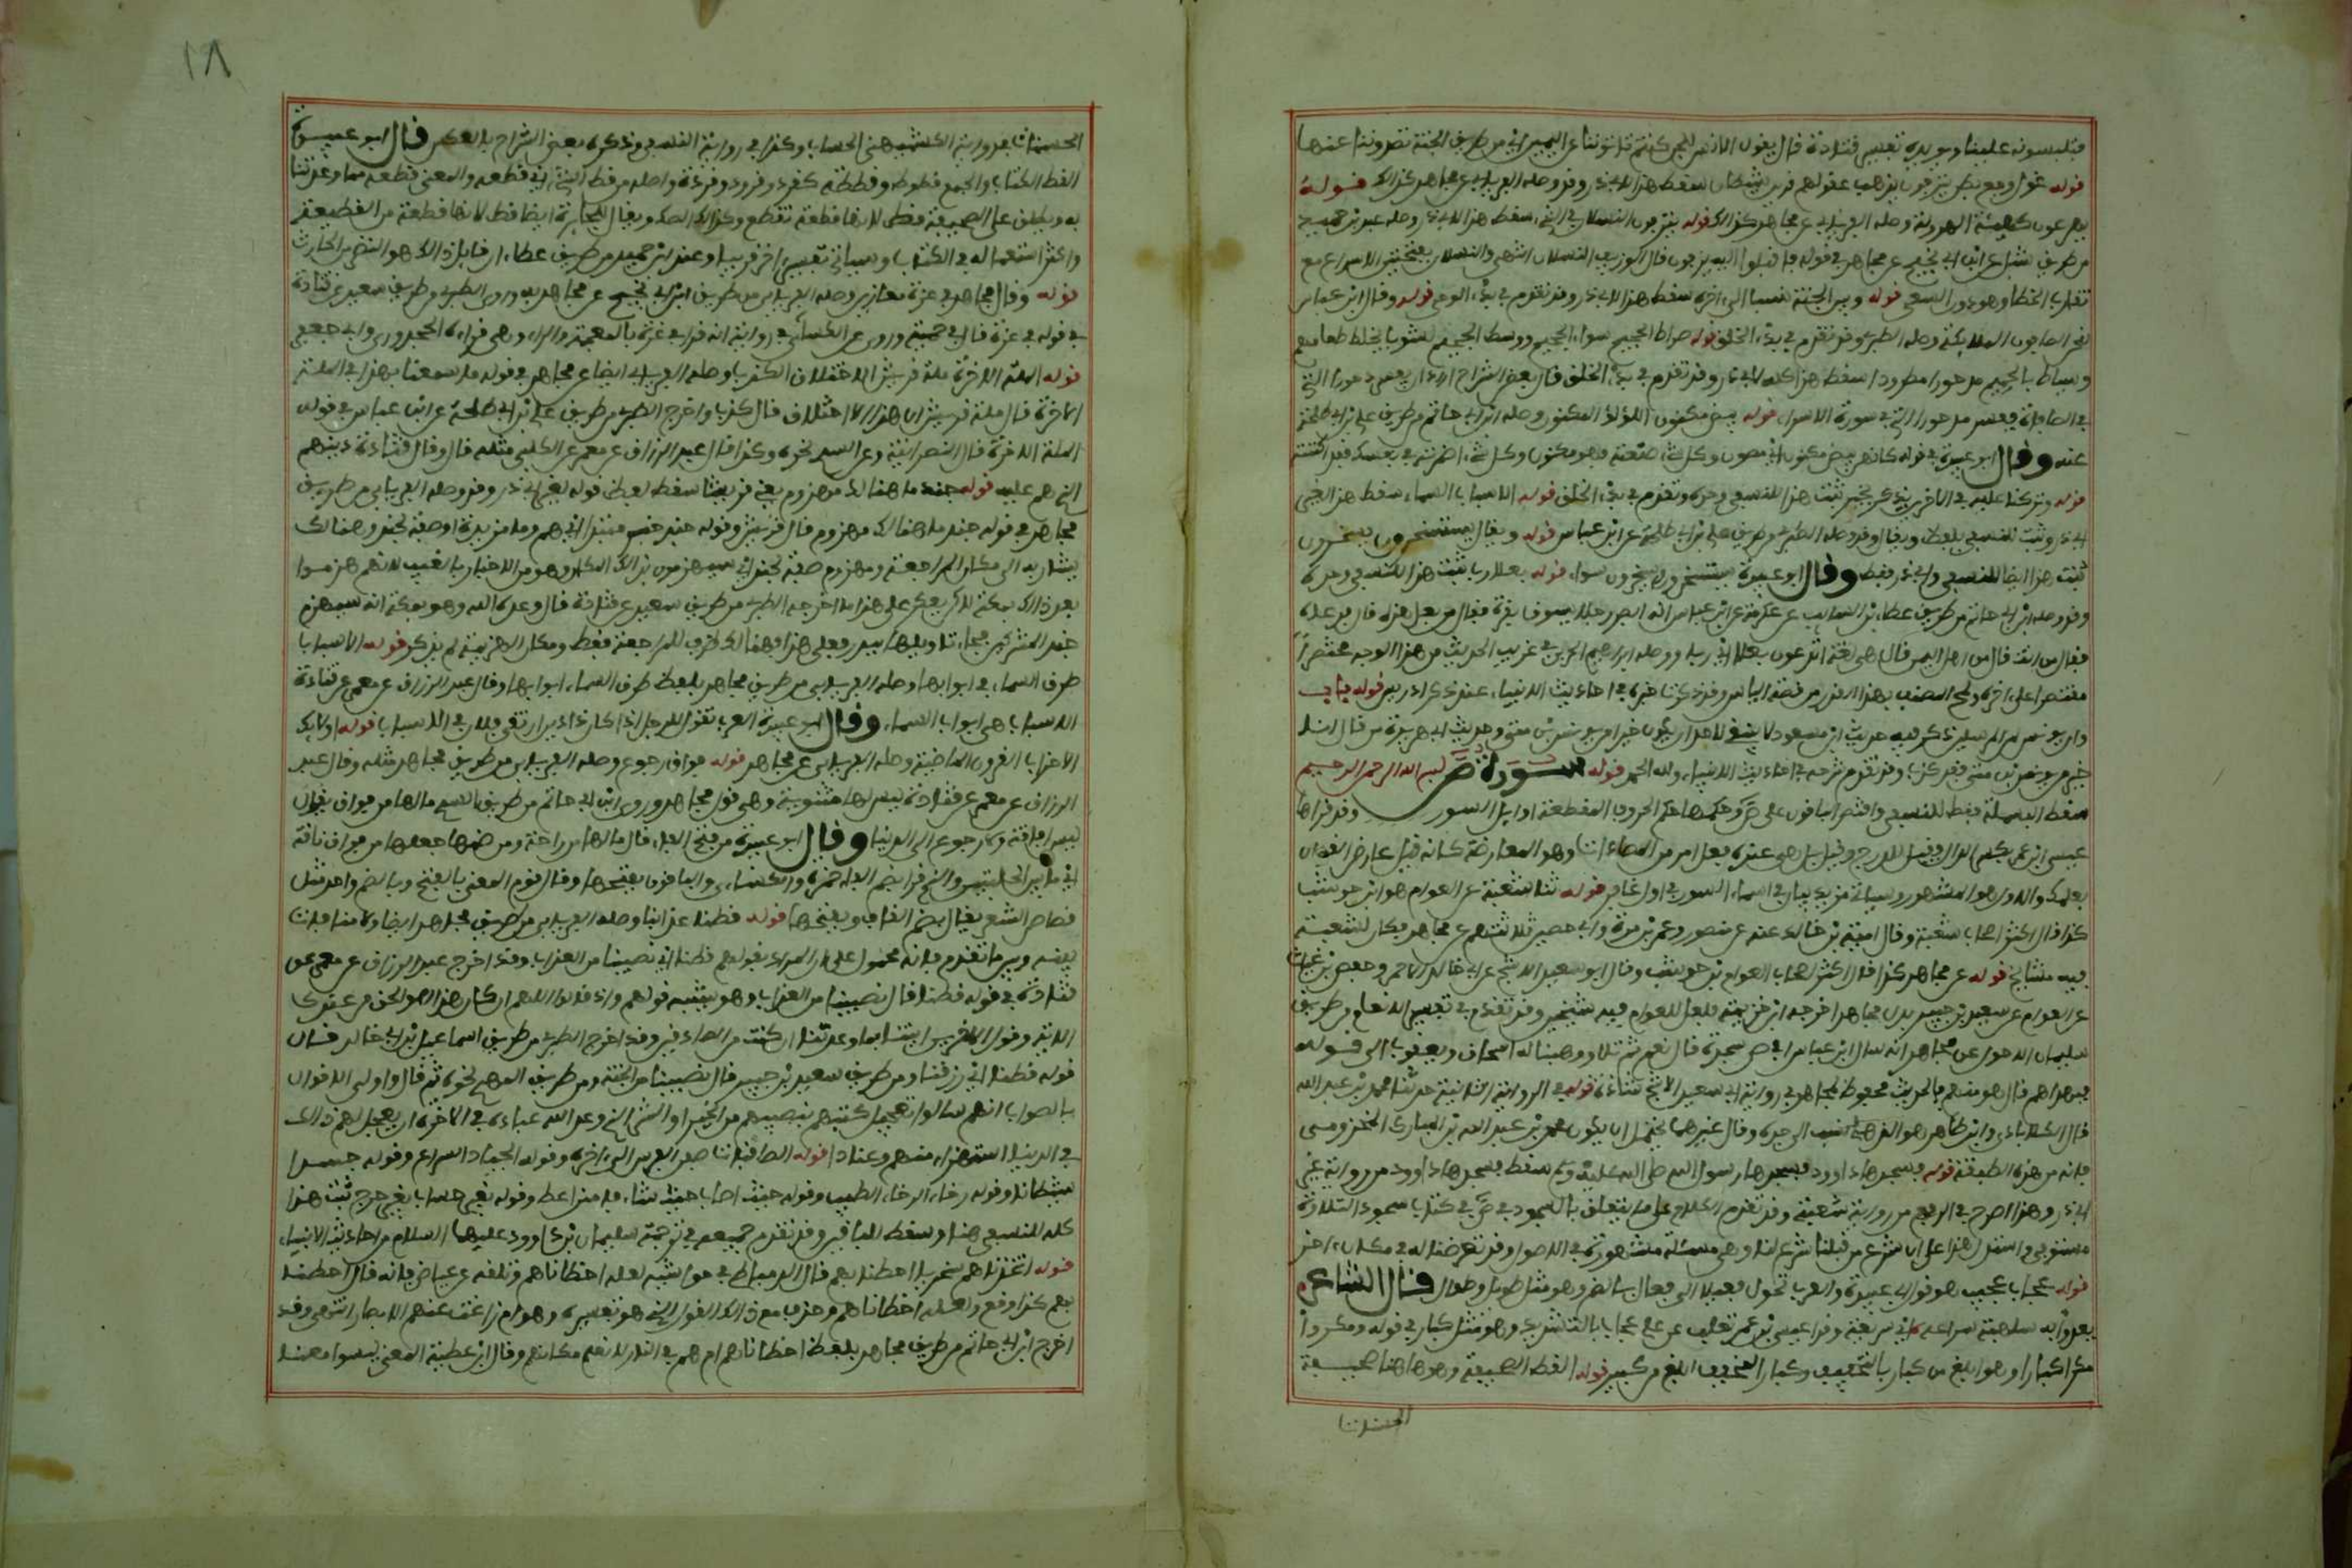 فتلبسونه علينا ويؤيده تفسير قتادة قال يقول الانس للجن كنتم تاتوننا عن اليمين اي من طريق الجنة تصدوننا عنها
قوله غول وجع بطن ينزفون تذهب عقولهم قرين شيطان سقط هذا لابي ذر وقد وصله الفريابي عن مجاهد كذلك قوله
يهرعون كهيئة الهرولة وصله الفريابي عن مجاهد كذلك قوله يزفون النسلان في المشي سقط هذا لابي ذر وصله عبد بن حميد
من طريق شبل عن ابن ابي نجيح عن مجاهد في قوله فاقبلوا اليه يزفون قال الوزيف النسلان انتهى والنسلان بفتحتين الاسراع مع
تقارب الخطا وهو دون السعي قوله وبين الجنة نسبا الى اخره سقط هذا لابي ذر وقد تقدم في بدء الوحي قوله وقال ابن عباس
لنحن الصافون الملائكة وصله الطبري وقد تقدم في بدء الخلق قوله صراط الجحيم سواء الجحيم ووسط الجحيم لشوبا يخلط طعامهم
ويساط بالحميم مدحورا مطرودا سقط هذا كله لابي ذر وقد تقدم في بدء الخلق قال بعض الشراح اراد ان يفسر دحورا التي
في الصافات ففسر مدحورا التي في سورة الاسراء قوله بيض مكنون اللؤلؤ المكنون وصله ابن ابي حاتم من طريق علي بن ابي طلحة
عنه وقال ابو عبيدة في قوله كانهن بيض مكنون اي مصون وكل شيء صنته فهو مكنون وكل شيء اضمرته في نفسك فقد اكننته
قوله وتركنا عليه في الاخرين يذكر بخير ثبت هذا للنسفي وحده وتقدم في بدء الخلق قوله الاسباب السماء سقط هذا لغير
ابي ذر وثبت للنسفي بلفظ ويقال وقد وصله الطبري من طريق علي بن ابي طلحة عن ابن عباس قوله ويقال يستسخرون يسخرون
ثبت هذا ايضا للنسفي وابي ذر فقط وقال ابو عبيدة يستسخرون ويسخرون سواء قوله بعلا ربا ثبت هذا للنسفي وحده
وقد وصله ابن ابي حاتم من طريق عطاء بن السائب عن عكرمة عن ابن عباس انه ابصر رجلا يسوق بقرة فقال من بعل هذه قال فدعاه
فقال من انت قال من اهل اليمن قال هي لغة اتدعون بعلا اي ربا ووصله ابراهيم الحربي في غريب الحديث من هذا الوجه مختصرا
مقتصرا على اخره ولمح المصنف بهذا القدر من قصة الياس وقد ذكرت خبره في احاديث الانبياء عند ذكر ادريس قوله باب
وان يونس لمن المرسلين ذكر فيه حديث ابن مسعود لا ينبغي لاحد ان يكون خيرا من يونس بن متى وحديث ابي هريرة من قال انا
خير من يونس بن متى فقد كذب وقد تقدم شرحه في احاديث الانبياء ولله الحمد قوله سورة ص بسم الله الرحمن الرحيم
سقط البسملة فقط للنسفي واقتصر الباقون على ص وحكمها حكم الحروف المقطعة اوائل السور وقد قراها
عيسى بن عمر بكسر الدال فقيل للدرج وقيل بل هو عنده فعل امر من المصاداة وهو المعارضة كانه قيل عارض القران
بعملك والاول هو المشهور وسياتي مزيد بيان في اسماء السور في اول غافر قوله ثنا شعبة عن العوام هو ابن حوشب
كذا قال اكثر اصحاب شعبة وقال امية بن خالد عنه عن منصور وعمرو بن مرة وابي حصين ثلاثتهم عن مجاهد فكان لشعبة
فيه مشايخ قوله عن مجاهد كذا قال اكثر اصحاب العوام بن حوشب وقال ابو سعيد الاشج عن ابي خالد الاحمر وحفص بن غياث
عن العوام عن سعيد بن جبير بدل مجاهد اخرجه ابن خزيمة فلعل للعوام فيه شيخين وقد تقدم في تفسير الانعام من طريق
سليمان الاحول عن مجاهد انه سال ابن عباس افي ص سجدة قال نعم ثم تلا ووهبنا له اسحاق ويعقوب الى قوله
فبهداهم قال هو منهم فالحديث محفوظ لمجاهد فرواية ابي سعيد الاشج شاذة قوله في الرواية الثانية حدثنا محمد بن عبد الله
قال الكلاباذي وابن طاهر هو الذهلي نسب الى جده وقال غيرهما يحتمل ان يكون محمد بن عبد الله بن المبارك المخزومي
فانه من هذه الطبقة قوله فسجدها داوود فسجدها رسول الله صلى الله عليه وسلم سقط فسجدها داوود من رواية غير
ابي ذر وهذا اصرح في الرفع من رواية شعبة وقد تقدم الكلام على ما يتعلق بالسجود في ص في كتاب سجود التلاوة
مستوفى واستدل بهذا على ان شرع من قبلنا شرع لنا وهي مسئلة مشهورة في الاصول وقد تعرضنا لها في مكان اخر
قوله عجاب عجيب هو قول ابي عبيدة والعرب تحول فعيلا الى فعال بالضم وهو مثل طويل وطوال قال الشاعر
يعدو به سلهبة سراعه اي سريعة وقرا عيسى بن عمر ونقلت عن علي عجاب بالتشديد وهو مثل كبار في قوله ومكروا
مكرا كبارا وهو ابلغ من كبار بالتخفيف وكبار المخفف ابلغ من كبير قوله القط الصحيفة وهو هاهنا صحيفة
الحسنات
١٨
الحسنات في رواية الكشميهني الحساب وكذا في رواية النسفي وذكره بعض الشراح بالعكس قال ابو عبيدة
القط الكتاب والجمع قطوط وقططة كقرد وقرود وقردة واصله من قط الشيء اي قطعه والمعنى قطعة مما وعدتنا
به ويطلق على الصحيفة قط لانها قطعة تقطع وكذلك الصك ويقال للجائزة ايضا قط لانها قطعة من العطية
واكثر استعماله في الكتاب وسياتي تفسير اخر قريبا وعند ابن حميد من طريق عطاء ان قائل ذلك هو النضر بن الحارث
قوله وقال مجاهد في عزة معازين وصله الفريابي من طريق ابن ابي نجيح عن مجاهد به وروى الطبري من طريق سعيد عن قتادة
في قوله في عزة قال في حمية وروي عن الكسائي في رواية انه قرا في غرة بالمعجمة والراء وهي قراءة الجحدري وابي جعفر
قوله الملة الاخرة ملة قريش الاختلاق الكذب وصله الفريابي ايضا عن مجاهد في قوله ما سمعنا بهذا في الملة
الاخرة قال ملة قريش ان هذا الا اختلاق قال كذب واخرج الطبري من طريق علي بن ابي طلحة عن ابن عباس في قوله
الملة الاخرة قال النصرانية وعن السدي نحوه وكذا قال عبد الرزاق عن معمر عن الكلبي مثله قال وقال قتادة دينهم
الذي هم عليه قوله جند ما هنالك مهزوم يعني قريشا سقط لفظ قوله لغير ابي ذر وقد وصله الفريابي من طريق
مجاهد في قوله جند ما هنالك مهزوم قال قريش وقوله جند خبر مبتدا اي هم وما مزيدة او صفة لجند وهنالك
يشار به الى مكان المراجعة ومهزوم صفة لجند اي سيهزمون بذلك المكان وهو من الاخبار بالغيب لانهم هزموا
بعد ذلك بمكة لكن يعكر على هذا ما اخرجه الطبري من طريق سعيد عن قتادة قال وعده الله وهو بمكة انه سيهزم
جند المشركين فجاء تاويلها ببدر فعلى هذا فهنالك ظرف للمراجعة فقط ومكان الهزيمة لم يذكر قوله الاسباب
طرق السماء في ابوابها وصله الفريابي من طريق مجاهد بلفظ طرق السماء ابوابها وقال عبد الرزاق عن معمر عن قتادة
الاسباب هي ابواب السماء وقال ابو عبيدة العرب تقول للرجل اذا كان ذا دين ارتقى فلان في الاسباب قوله اولئك
الاحزاب القرون الماضية وصله الفريابي عن مجاهد قوله فواق رجوع وصله الفريابي من طريق مجاهد مثله وقال عبد
الرزاق عن معمر عن قتادة ليس لها مثنوية وهي قول مجاهد وروى ابن ابي حاتم من طريق السدي مالها من فواق يقول
ليس افاقة ولا رجوع الى الدنيا وقال ابو عبيدة من فتح الفاء قال مالها من راحة ومن ضمها جعلها من فواق ناقة
اي ما بين الحلبتين والذي قرا بضم الفاء حمزة والكسائي والباقون بفتحها وقال قوم المعنى بالفتح وبالضم واحد مثل
قصاص الشعر يقال بضم القاف وبفتحها قوله قطنا عذابنا وصله الفريابي من طريق مجاهد ايضا ولا منافاة
بينه وبين ما تقدم فانه محمول على ان المراد بقولهم قطنا اي نصيبنا من العذاب وقد اخرج عبد الرزاق عن معمر عن
قتادة في قوله قطنا قال نصيبنا من العذاب وهو شبيه قولهم واذ قالوا اللهم ان كان هذا هو الحق من عندك
الاية وقول الاخرين ائتنا بما وعدتنا ان كنت من الصادقين وقد اخرج الطبري من طريق اسماعيل بن ابي خالد قال
قوله قطنا اي رزقنا ومن طريق سعيد بن جبير قال نصيبنا من الجنة ومن طريق السدي نحوه ثم قال واولى الاقوال
بالصواب انهم سالوا تعجيل كتبهم بنصيبهم من الخير او الشر الذي وعد الله عباده في الاخرة ان يعجل لهم ذلك
في الدنيا استهزاء منهم وعنادا قوله الصافنات صفن الفرس الى اخره وقوله الجياد السراع وقوله جسدا
شيطانا وقوله رخاء الرخاء الطيب وقوله حيث اصاب حيث شاء فامنن اعط وقوله بغير حساب بغير حرج ثبت هذا
كله للنسفي هنا وسقط للباقين وقد تقدم جميعه في ترجمة سليمان بن داوود عليهما السلام من احاديث الانبياء
قوله اتخذناهم سخريا احطنا بهم قال الدمياطي في حواشيه لعله اخطاناهم وتلقه عن عياض فانه قال احطنا
بهم كذا وقع ولعله اخطاناهم وحذف مع ذلك القول الذي هو تفسيره وهو ام زاغت عنهم الابصار انتهى وقد
اخرج ابن ابي حاتم من طريق مجاهد بلفظ اخطاناهم ام هم في النار لا نعلم مكانهم وقال ابن عطية المعنى ليسوا معنا